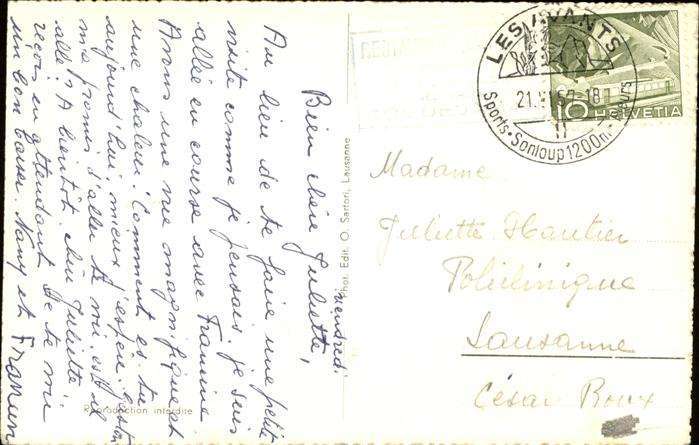 vendredi
Bien chère Juliette,
Au lieu de te faire une petite
visite comme je pensais, je suis
allée en course avec Francine
Avons une vue magnifique et
une chaleur. Comment es tu
aujourd'hui, mieux j'espère
me promis d'aller te
allé A bientôt chère Juliette
reçois en attendant de te
un bon baiser. Nany et Francine
Reproduction interdite
Phot. Edit. O. Sartori, Lausanne
LES AVANTS
21. 18
Sports · Sonloup 1200m ·
10 HELVETIA
Madame
Juliette Hautier
Policlinique
Lausanne
César Roux